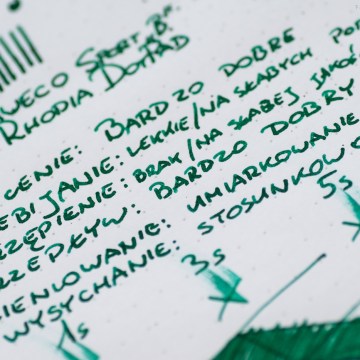 WECO SPORT "B"
RHODIA DOTPAD
CENIE: BARDZO DOBRE
EBIJANIE: LEKKIE/NA SŁABYCH
RZĘPIENIE: BRAK/NA SŁABEJ JAKOŚ
RZEPŁYW: BARDZO DOBRY
IENIOWANIE: UMIARKOWANIE
WYSYCHANIE: STOSUNKOWO
1s 3s 5s